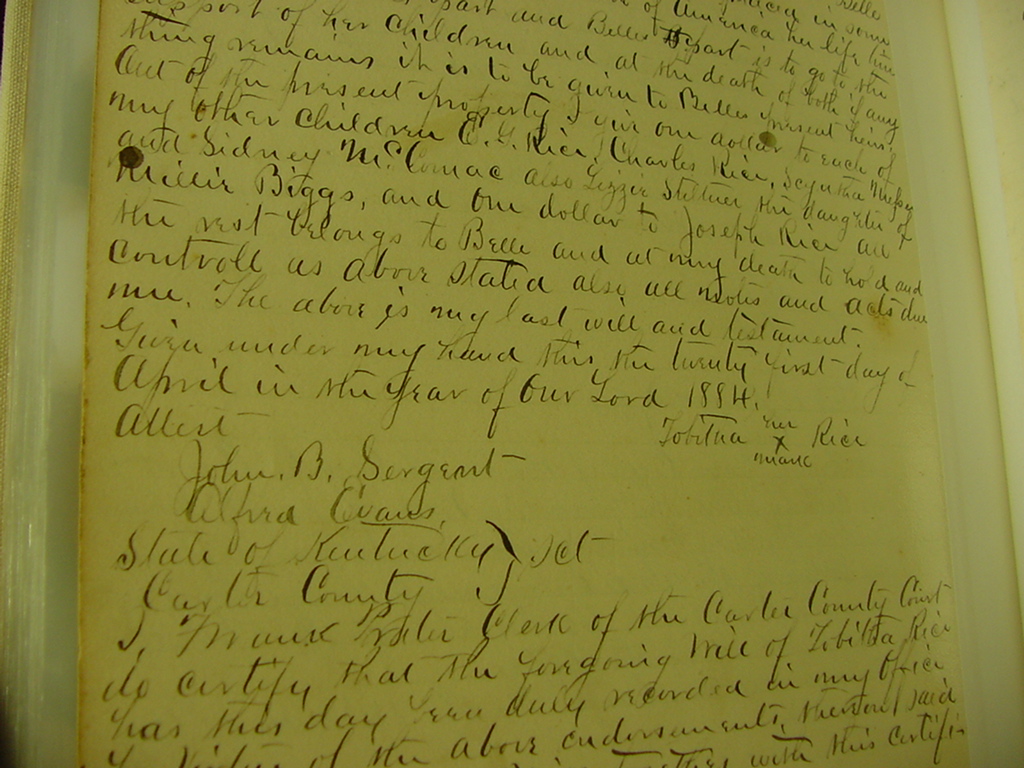 Belle
of America her life time
support of her children and Belles part is to go to the
thing remains it is to be given to Belles present heirs.
Out of the present property I give one dollar to each of
my other children E. G. Rice, Charles Rice,
and Sidney McComac also Lizzie Stiltner the daughter of
Millie Biggs, and one dollar to Joseph Rice all
the rest belongs to Belle and at my death to hold and
controll as above stated also all notes and acts due
me. The above is my last will and testament.
Given under my hand this the twenty first day of
April in the year of Our Lord 1894.
Attest
Tobitha her x mark Rice
John. B. Sergent
Alfred Evans.
State of Kentucky } Sct
Carter County
I, Frank Prater Clerk of the Carter County Court
do certify that the foregoing Will of Tobitha Rice
has this day been duly recorded in my office
of the above endorsements thereon said
with this certifi